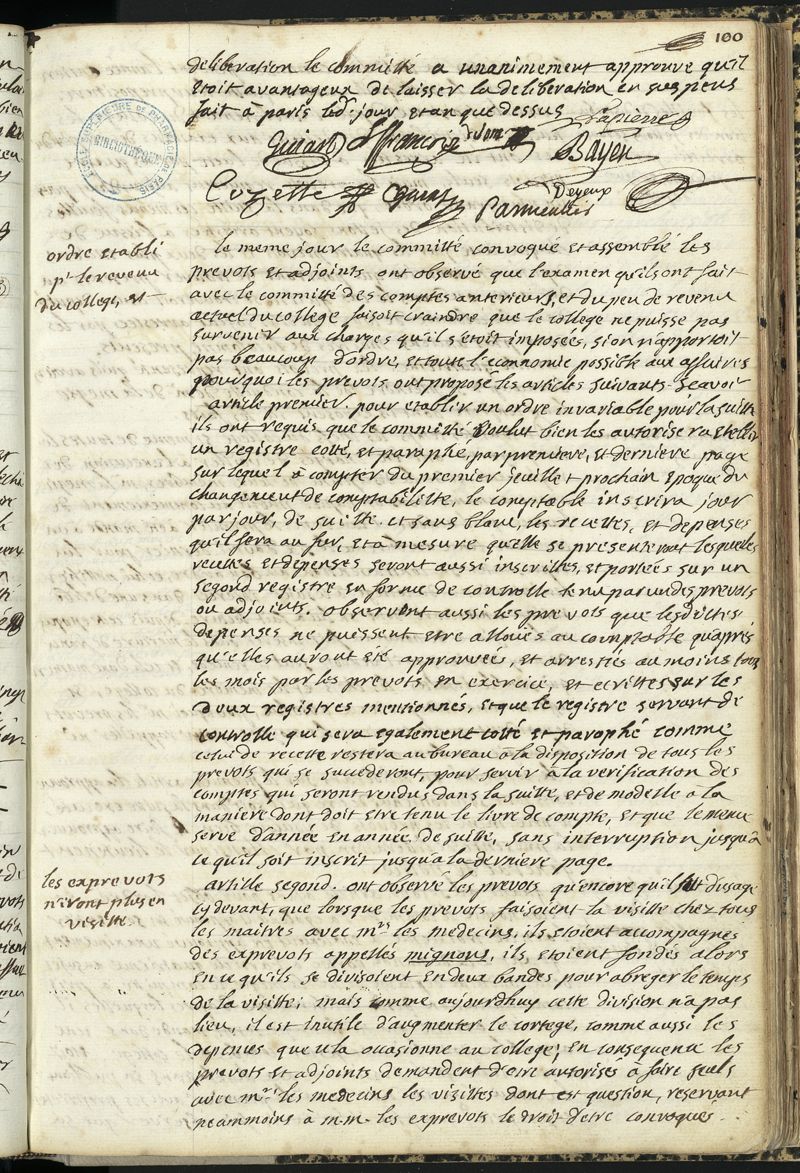 100
deliberation le committé a unanimement approuvé qu'il
etoit avantageux de laisser la deliberation en suspens
fait à paris led. jour et an que dessus
Lapierre
Guiart françois Simonnet Bayen
Cuzette Deyeux
Parmentier
ECOLE SUPERIEURE DE PHARMACIE DE PARIS
BIBLIOTHEQUE
ordre etabli
pr le revenu
du college,
le meme jour le committé convoqué et assemblé les
prevots et adjoints ont observé que l'examen qu'ils ont fait
avec le committé des comptes anterieurs, et du peu de revenu
actuel du college faisoit craindre que le college ne puisse pas
survenir aux charges qu'il s'etoit imposées, si on n'apportoit
pas beaucoup d'ordre, et toute l'economie possible aux affaires
pourquoi les prevots ont proposé les articles suivants. sçavoir
article premier. pour etablir un ordre invariable pour la suitte
ils ont requis que le committé voulut bien les autoriser a etablir
un registre cotté, et paraphé, par premiere, et derniere page
sur lequel à compter du premier jeuillet prochain epoque du
changement de comptabilitté, le comptable inscrira jour
par jour, de suitte et sans blanc, les recettes, et depenses
qu'il fera au fur, et a mesure qu'elle se presenteront lesquelles
recettes et depenses seront aussi inscrittes, et portées sur un
segond registre en forme de controlle tenu par un des prevots
ou adjoints. observent aussi les prevots que lesdittes
depenses ne puissent etre allouées au comptable qu'après
qu'elles auront eté approuvées, et arrestées au moins tous
les mois par les prevots en exercice, et ecrittes sur les
deux registres mentionnés, et que le registre servant de
controlle qui sera egalement cotté et paraphé comme
celui de recette restera au bureau a la disposition de tous les
prevots qui se succederont, pour servir à la verification des
comptes qui seront rendus dans la suitte, et de modelle a la
maniere dont doit etre tenu le livre de compte, et que le meme
serve d'année en année de suitte, sans interruption jusqu'a
ce qu'il soit inscrit jusqu'a la derniere page.
les exprevots
n'iront plus en
visitte
article segond. ont observé les prevots qu'encore qu'il fut d'usage
cy devant, que lorsque les prevots faisoient la visitte chez tous
les maitres avec mrs les medecins, ils etoient accompagnés
des exprevots appellés mignons, ils etoient fondés alors
en ce qu'ils se divisoient en deux bandes pour abreger le temps
de la visitte; mais comme aujourdhuy cette division n'a pas
lieu, il est inutile d'augmenter le cortege, comme aussi les
depenses que cela occasionne au college; en consequence les
prevots et adjoints demandent d'etre autorisés a faire seuls
avec mrs les medecins les visittes dont est question, reservant
neammoins à m.m. les exprevots le droit d'etre convoqués.